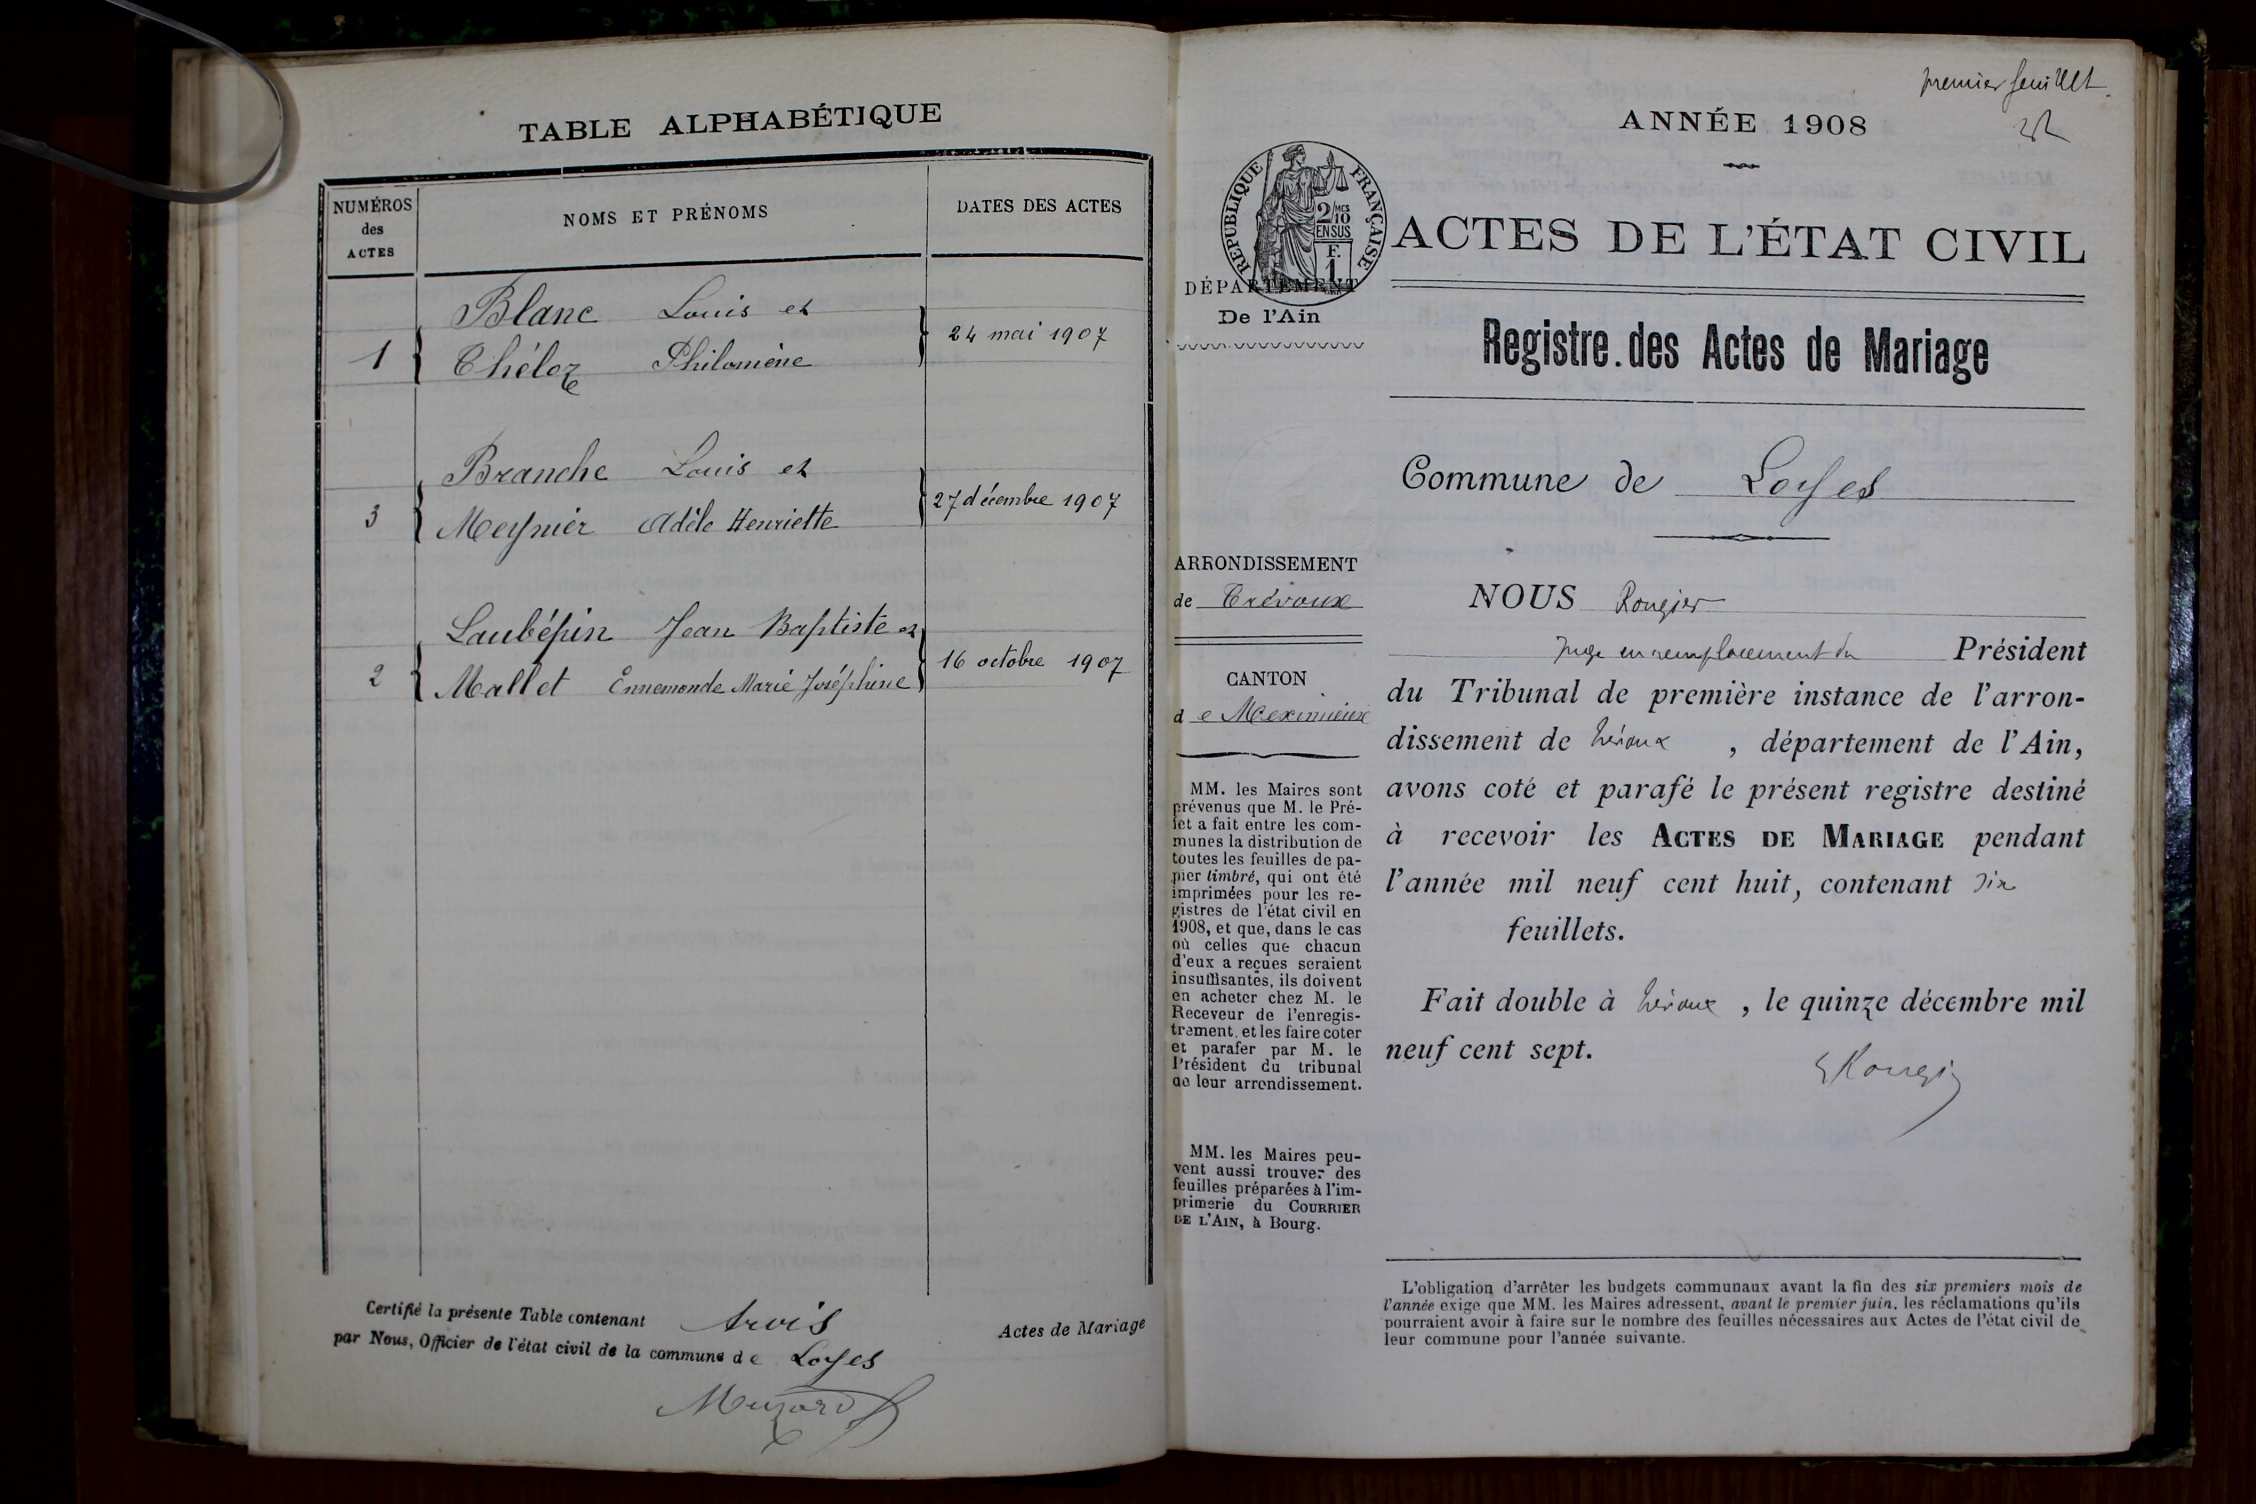 TABLE ALPHABÉTIQUE
NUMÉROS
des
ACTES
NOMS ET PRÉNOMS
DATES DES ACTES
Blanc Louis et
1
Théloz Philomène
24 mai 1907
Branche Louis et
3
Meynier Adèle Henriette
27 décembre 1907
Laubépin Jean Baptiste et
2
Mallet Ennemonde Marie Joséphine
16 octobre 1907
Certifié la présente Table contenant trois Actes de Mariage
par Nous, Officier de l'état civil de la commune de Loyes
premier feuillet
ANNÉE 1908
RÉPUBLIQUE FRANÇAISE
2/10 MES
EN SUS
F.
1
ACTES DE L'ÉTAT CIVIL
DÉPARTEMENT
De l'Ain
Registre des Actes de Mariage
Commune de Loyes
ARRONDISSEMENT
de Trévoux
CANTON
de Meximieux
MM. les Maires sont
prévenus que M. le Pré-
fet a fait entre les com-
munes la distribution de
toutes les feuilles de pa-
pier timbré, qui ont été
imprimées pour les re-
gistres de l'état civil en
1908, et que, dans le cas
où celles que chacun
d'eux a reçues seraient
insuffisantes, ils doivent
en acheter chez M. le
Receveur de l'enregis-
trement, et les faire coter
et parafer par M. le
Président du tribunal
de leur arrondissement.
MM. les Maires peu-
vent aussi trouver des
feuilles préparées à l'im-
primerie du COURRIER
DE L'AIN, à Bourg.
NOUS Rougier
juge en remplacement du Président
du Tribunal de première instance de l'arron-
dissement de Trévoux, département de l'Ain,
avons coté et parafé le présent registre destiné
à recevoir les ACTES DE MARIAGE pendant
l'année mil neuf cent huit, contenant dix
feuillets.
Fait double à Trévoux, le quinze décembre mil
neuf cent sept.
Rougier
L'obligation d'arrêter les budgets communaux avant la fin des six premiers mois de
l'année exige que MM. les Maires adressent, avant le premier juin, les réclamations qu'ils
pourraient avoir à faire sur le nombre des feuilles nécessaires aux Actes de l'état civil de
leur commune pour l'année suivante.